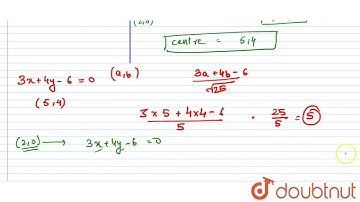 centre = 5,4
3x+4y-6=0 (a,b) 3a+4b-6
√25
(5,4)
3×5+4×4-6 . 25 = 5
5 5
(2,0) → 3x+4y-6=0
doubtnut